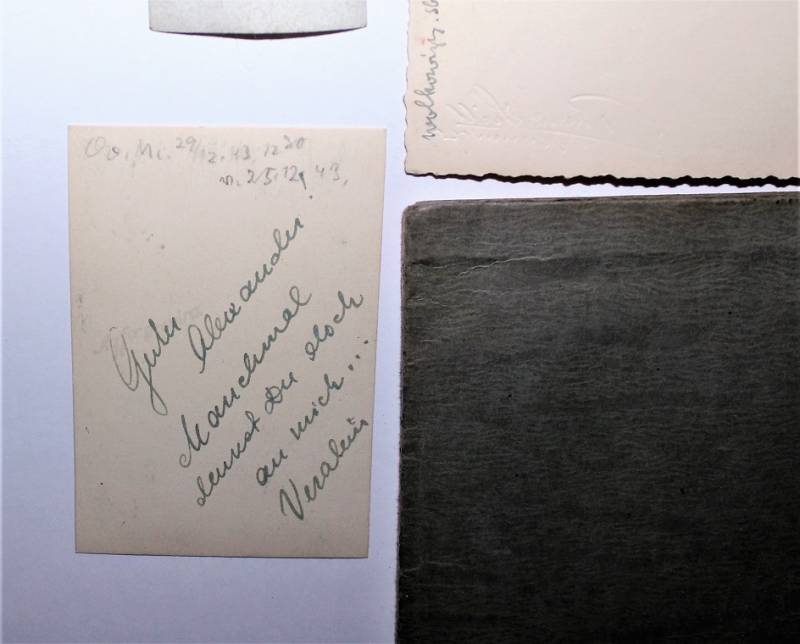 29/12.43 12 20
v. 25.12. 43,
Guter
Alexander!
Manchmal
denkst Du doch
an mich...
Veralein
wolkowysk.